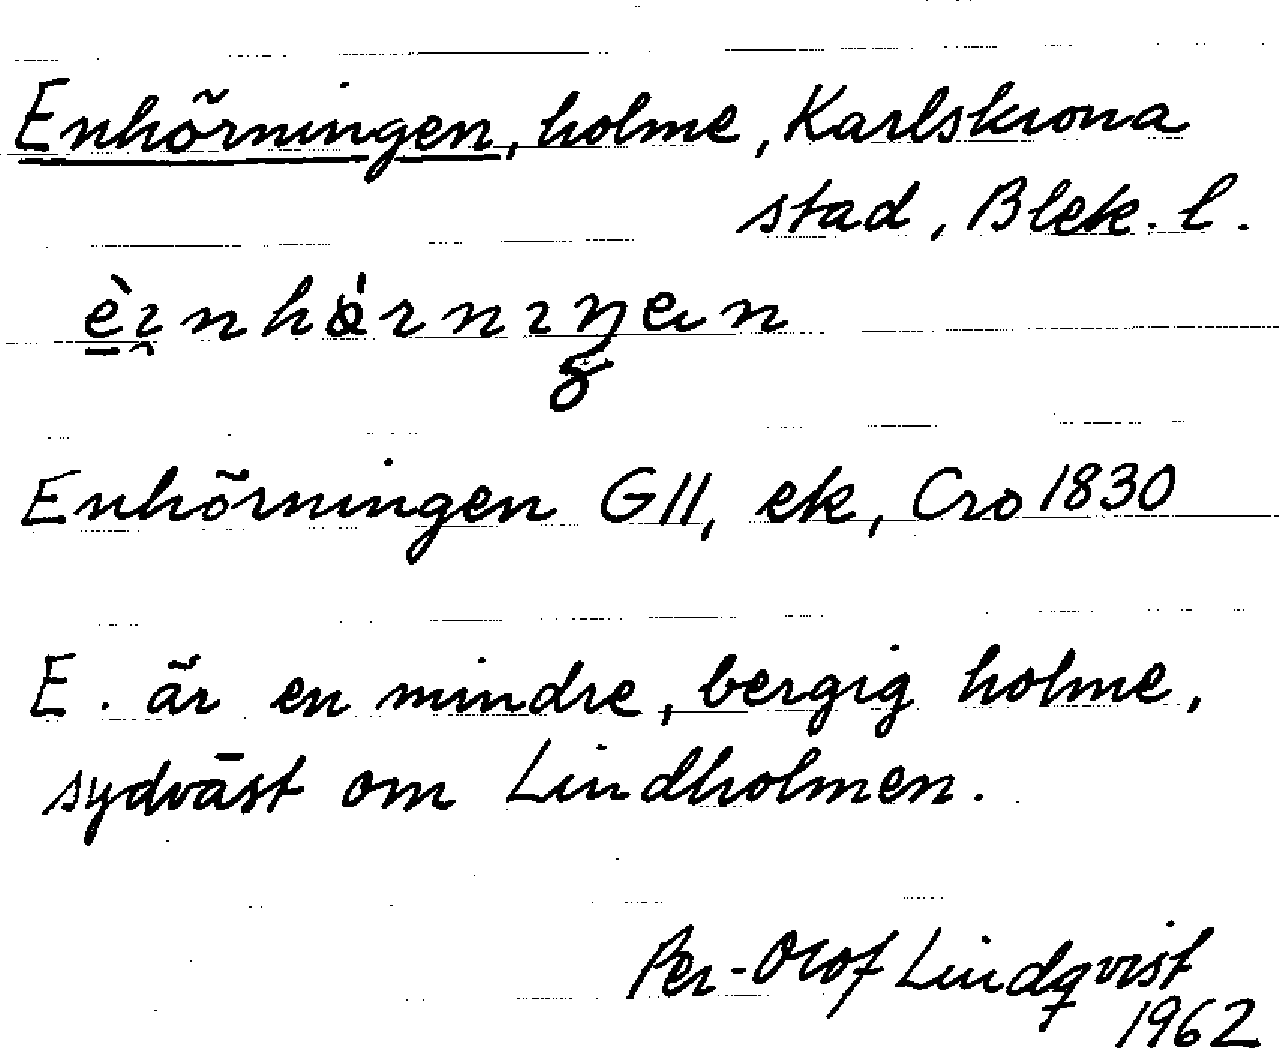 Enhörningen, holme, Karlskrona
stad, Blek. l.
Enhörningen GII, ek, Cro 1830
E. är en mindre, bergig holme,
sydväst om Lindholmen.
Per-Olof Lindqvist
1962